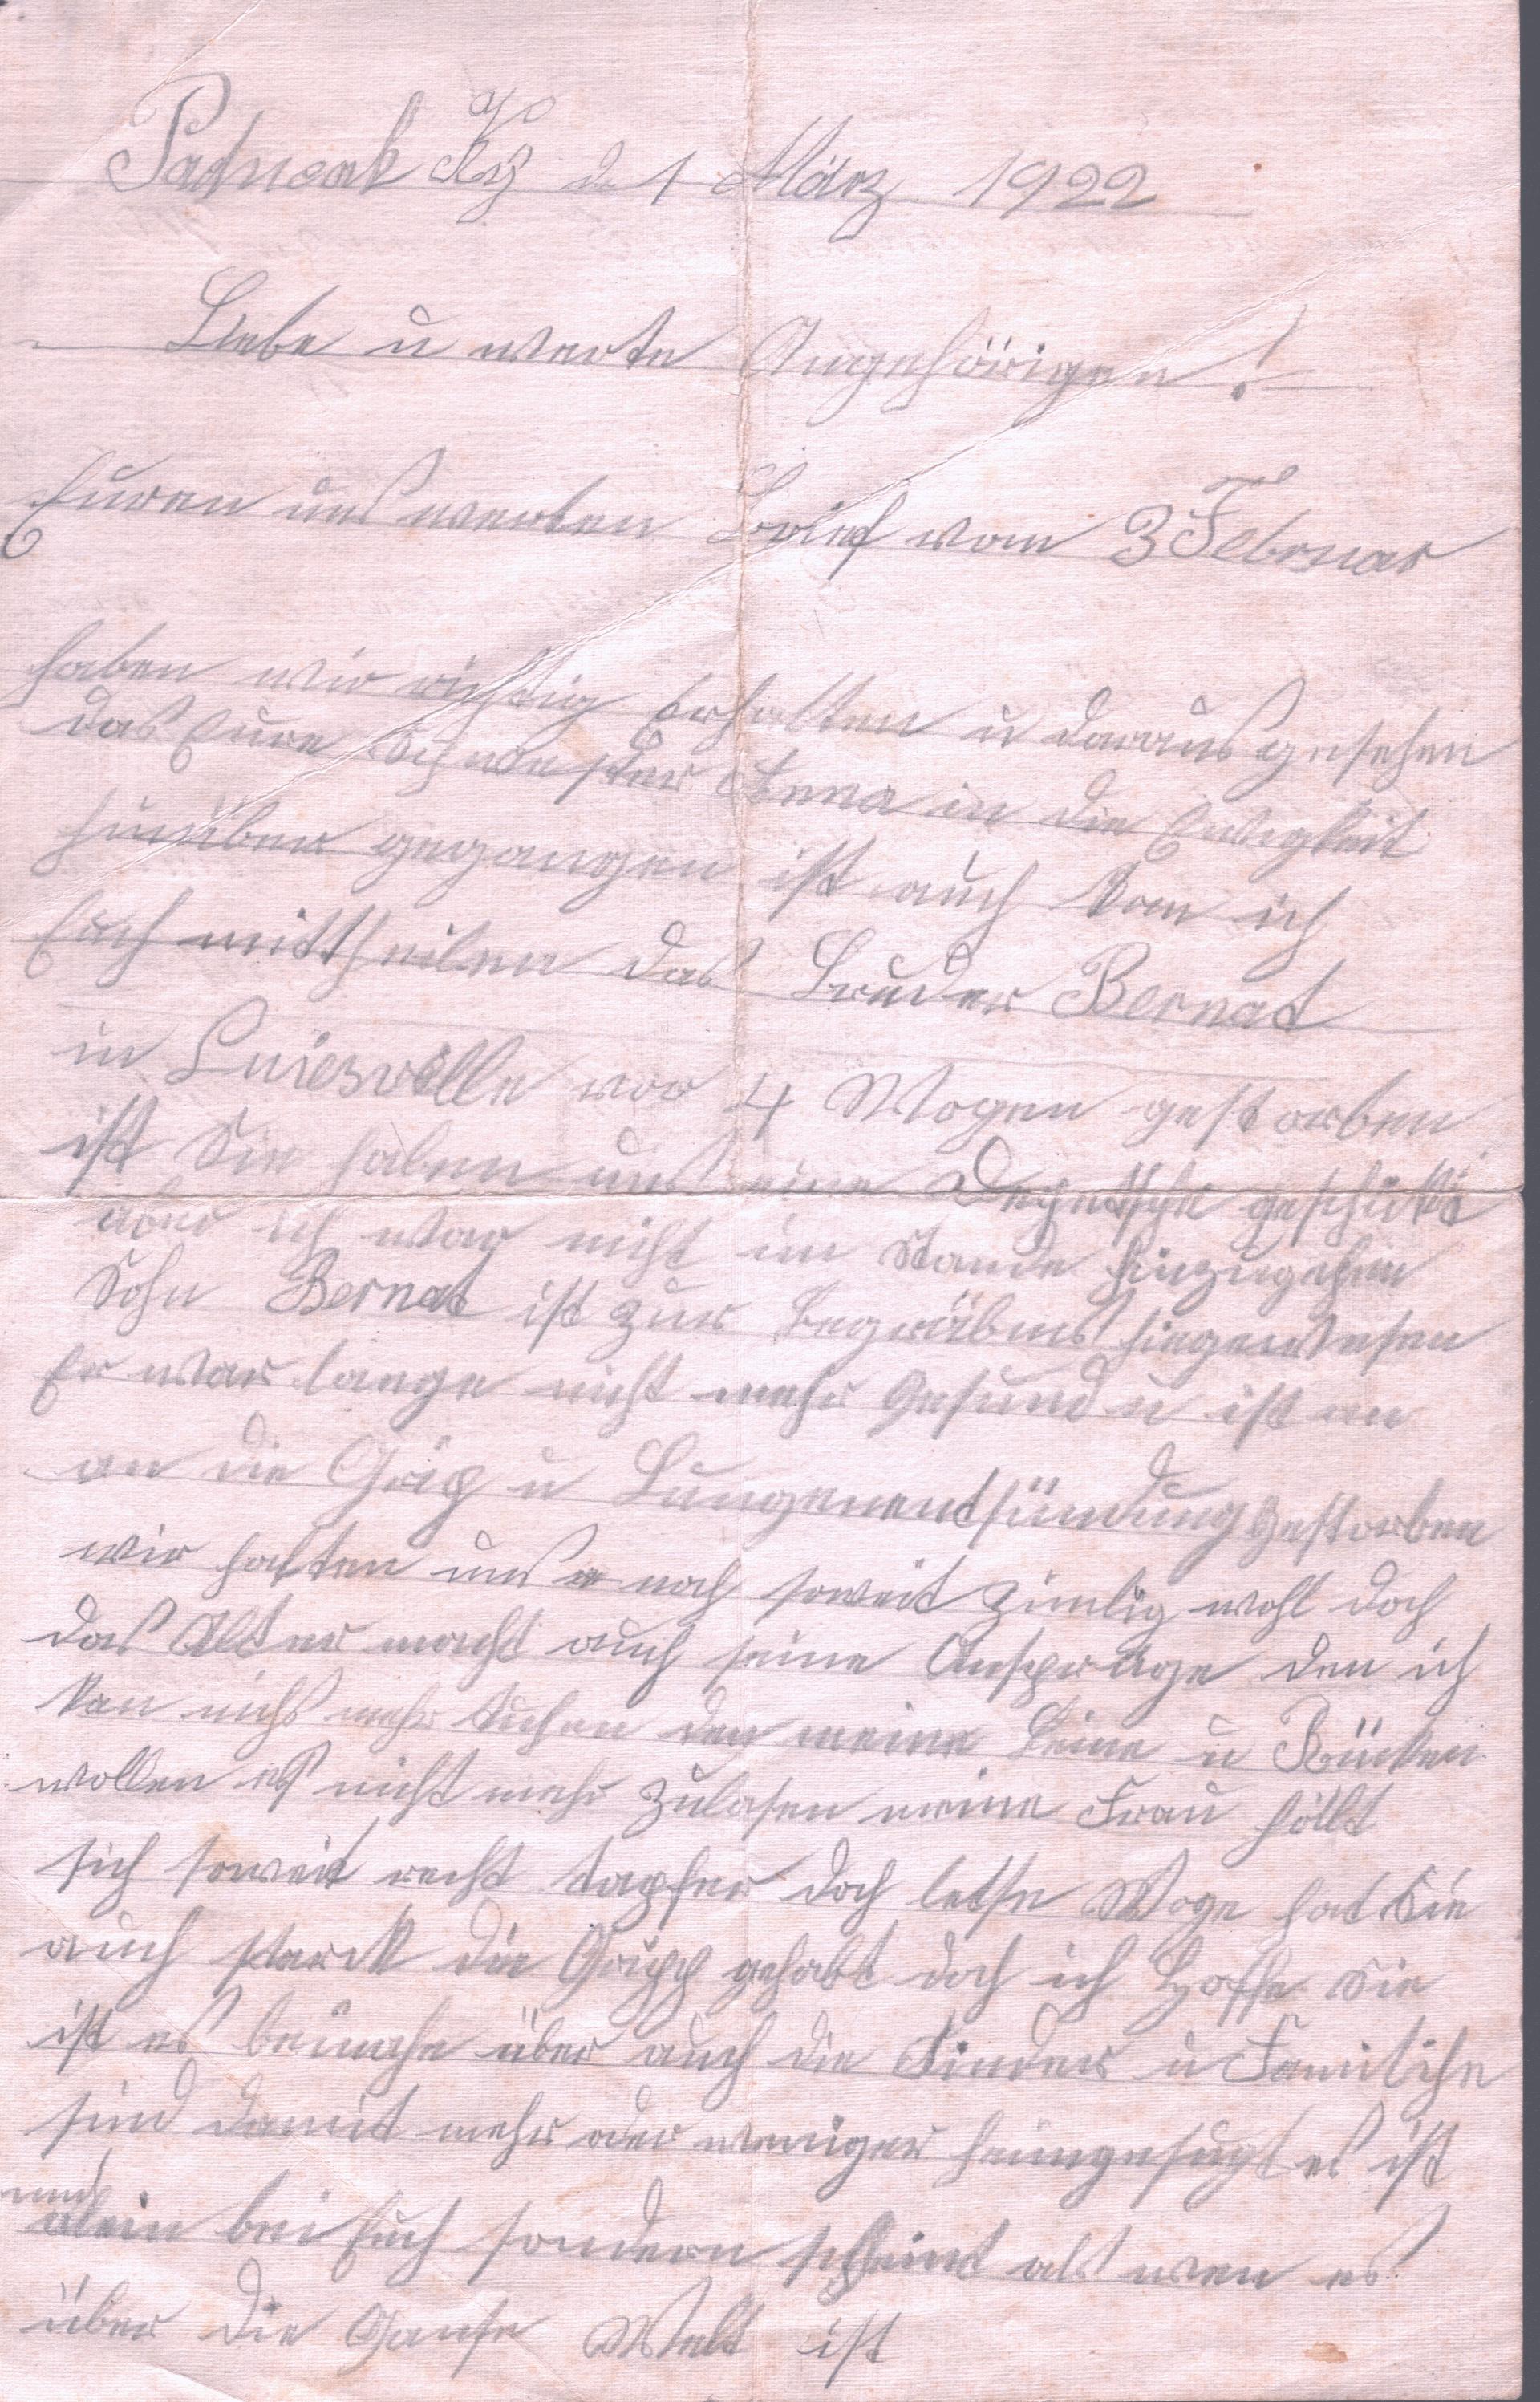 Paducah Ky d 1 März 1922
Liebe u werte Angehörigen!
Euren uns werten Brief vom 3 Februar
haben wir richtig Erhalten u daraus gesehen
das Eure Schwester Anna in die Ewigkeit
hinüber gegangen ist auch kan ich
Euch mittheilen das Bruder Bernat
in Luiesville vor 4 Wogen gestorben
ist Sie haben uns eine Depetsche geschickt
aber ich war nicht im Stande hinzugehen
Sohn Bernat ist zur Begräbnis hingewesen
Er war lange nicht mehr Gesund u ist an
an die Grip u Lungenentsündung gestorben
wir halten uns noch soweit zimlig wohl doch
das Alter macht auch seine Ansprüge den ich
kan nichs mehr tuhen den meine Beine u Rücken
wollen es nicht mehr zulasen meine Frau hällt
sich soweit recht tapfer doch letse Woge hat Sie
auch starck die Gripp gehabt doch ich Hoffe Sie
ist es beinahe über auch die Kinder u Familihe
sind damit mehr oder weniger heimgesugt es ist
nich
alein bei Euch sondern scheint als wen es
über die Ganse Welt ist